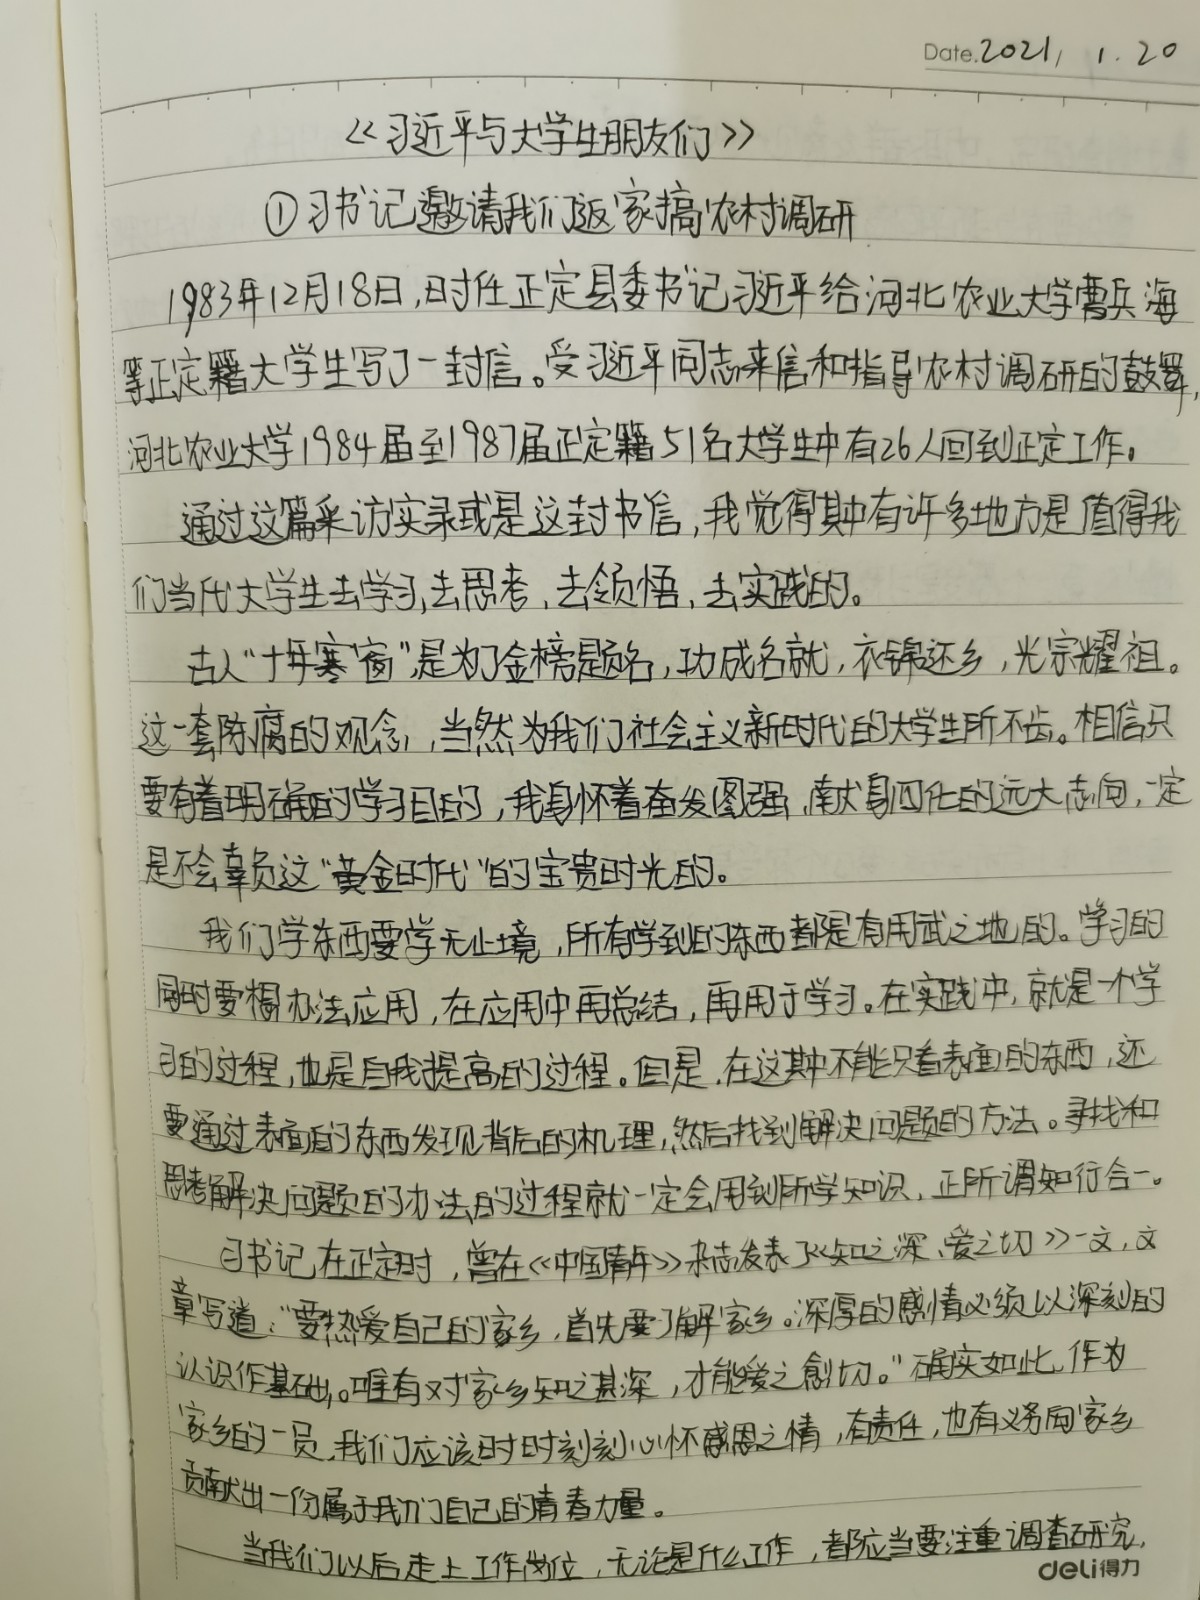 Date.2021, 1.20
《习近平与大学生朋友们》
①习书记邀请我们返家搞农村调研
1983年12月18日,时任正定县委书记习近平给河北农业大学曹兵海
等正定籍大学生写了一封信。受习近平同志来信和指导农村调研的鼓舞,
河北农业大学1984届至1987届正定籍51名大学生中有26人回到正定工作。
通过这篇采访实录或是这封书信,我觉得其中有许多地方是值得我
们当代大学生去学习,去思考,去领悟,去实践的。
古人“十年寒窗”,是为了金榜题名,功成名就,衣锦还乡,光宗耀祖。
这一套陈腐的观念,当然为我们社会主义新时代的大学生所不齿。相信只
要有着明确的学习目的,我身怀着奋发图强,献身四化的远大志向,一定
是不会辜负这“黄金时代”的宝贵时光的。
我们学东西要学无止境,所有学到的东西都是有用武之地的。学习的
同时要想办法应用,在应用中再总结,再用于学习。在实践中,就是一个学
习的过程,也是自我提高的过程。但是,在这其中不能只看表面的东西,还
要通过表面的东西发现背后的机理,然后找到解决问题的方法。寻找和
思考解决问题的办法的过程就一定会用到所学知识,正所谓知行合一。
习书记在正定时,曾在《中国青年》杂志发表了《知之深、爱之切》一文,文
章写道:“要热爱自己的家乡,首先要了解家乡。深厚的感情必须以深刻的
认识作基础。唯有对家乡知之甚深,才能爱之愈切。”确实如此,作为
家乡的一员,我们应该时时刻刻心怀感恩之情,有责任,也有义务向家乡
贡献出一份属于我们自己的青春力量。
当我们以后走上工作岗位,无论是什么工作,都应当要注重调查研究,
deli得力